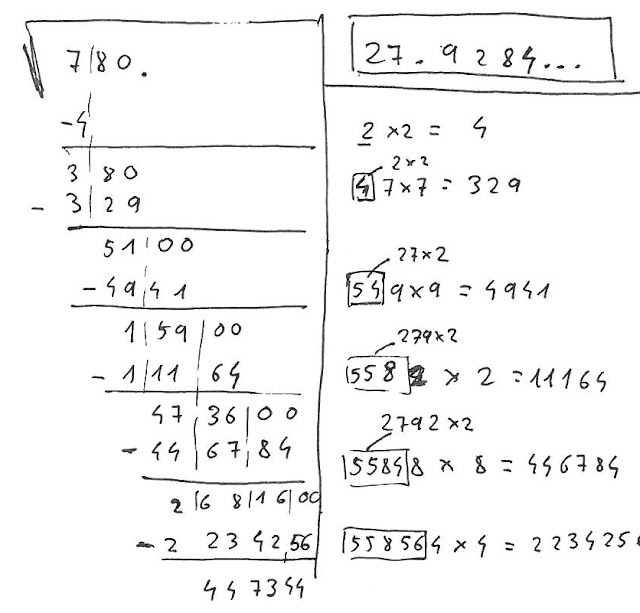 7|80.
27.9284...
-4
2 × 2 = 4
3|80
2×2
- 3|29
4 7 × 7 = 329
51|00
27×2
-49|41
54 9 × 9 = 4941
1|59|00
279×2
- 1|11 64
558 2 × 2 = 11164
47|36|00
2792×2
- 44|67|84
5584 8 × 8 = 446784
2|68|16|00
- 2 23 42,56
55856 4 × 4 = 223425
447344